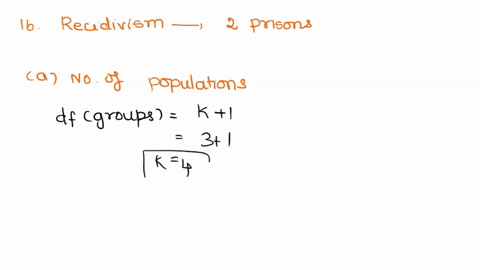 16. Recidivism → 2 prisons
(a) No. of populations
df (groups) = K+1
= 3+1
K = 4